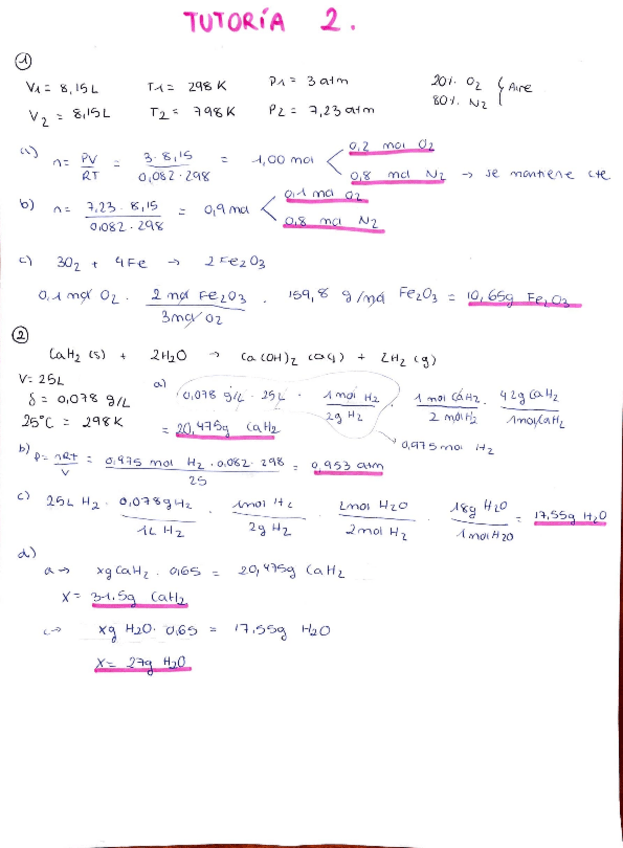 TUTORÍA 2.
①
V1 = 8,15L T1 = 298 K P1 = 3 atm 20% O2 } Aire
V2 = 8,15L T2 = 798 K P2 = 7,23 atm 80% N2
a) n = PV/RT = 3·8,15/0,082·298 = 1,00 mol < 0,2 mol O2
0,8 mol N2 → se mantiene cte
b) n = 7,23·8,15/0,082·298 = 0,9 mol < 0,1 mol O2
0,8 mol N2
c) 3O2 + 4Fe → 2Fe2O3
0,1 mol O2 · 2 mol Fe2O3/3 mol O2 · 159,8 g/mol Fe2O3 = 10,65g Fe2O3
②
CaH2 (s) + 2H2O → Ca(OH)2 (aq) + 2H2 (g)
V = 25L
δ = 0,078 g/L
25°C = 298 K
a) 0,078 g/L · 25L · 1 mol H2/2g H2 · 1 mol CaH2/2 mol H2 · 42g CaH2/1 mol CaH2
= 20,475g CaH2
→ 0,975 mol H2
b) P = nRT/V = 0,975 mol H2 · 0,082 · 298/25 = 0,953 atm
c) 25L H2 · 0,078g H2/1L H2 · 1 mol H2/2g H2 · 2 mol H2O/2 mol H2 · 18g H2O/1 mol H2O = 17,55g H2O
d)
a → xg CaH2 · 0,65 = 20,475g CaH2
x = 31,5g CaH2
c → xg H2O · 0,65 = 17,55g H2O
x = 27g H2O